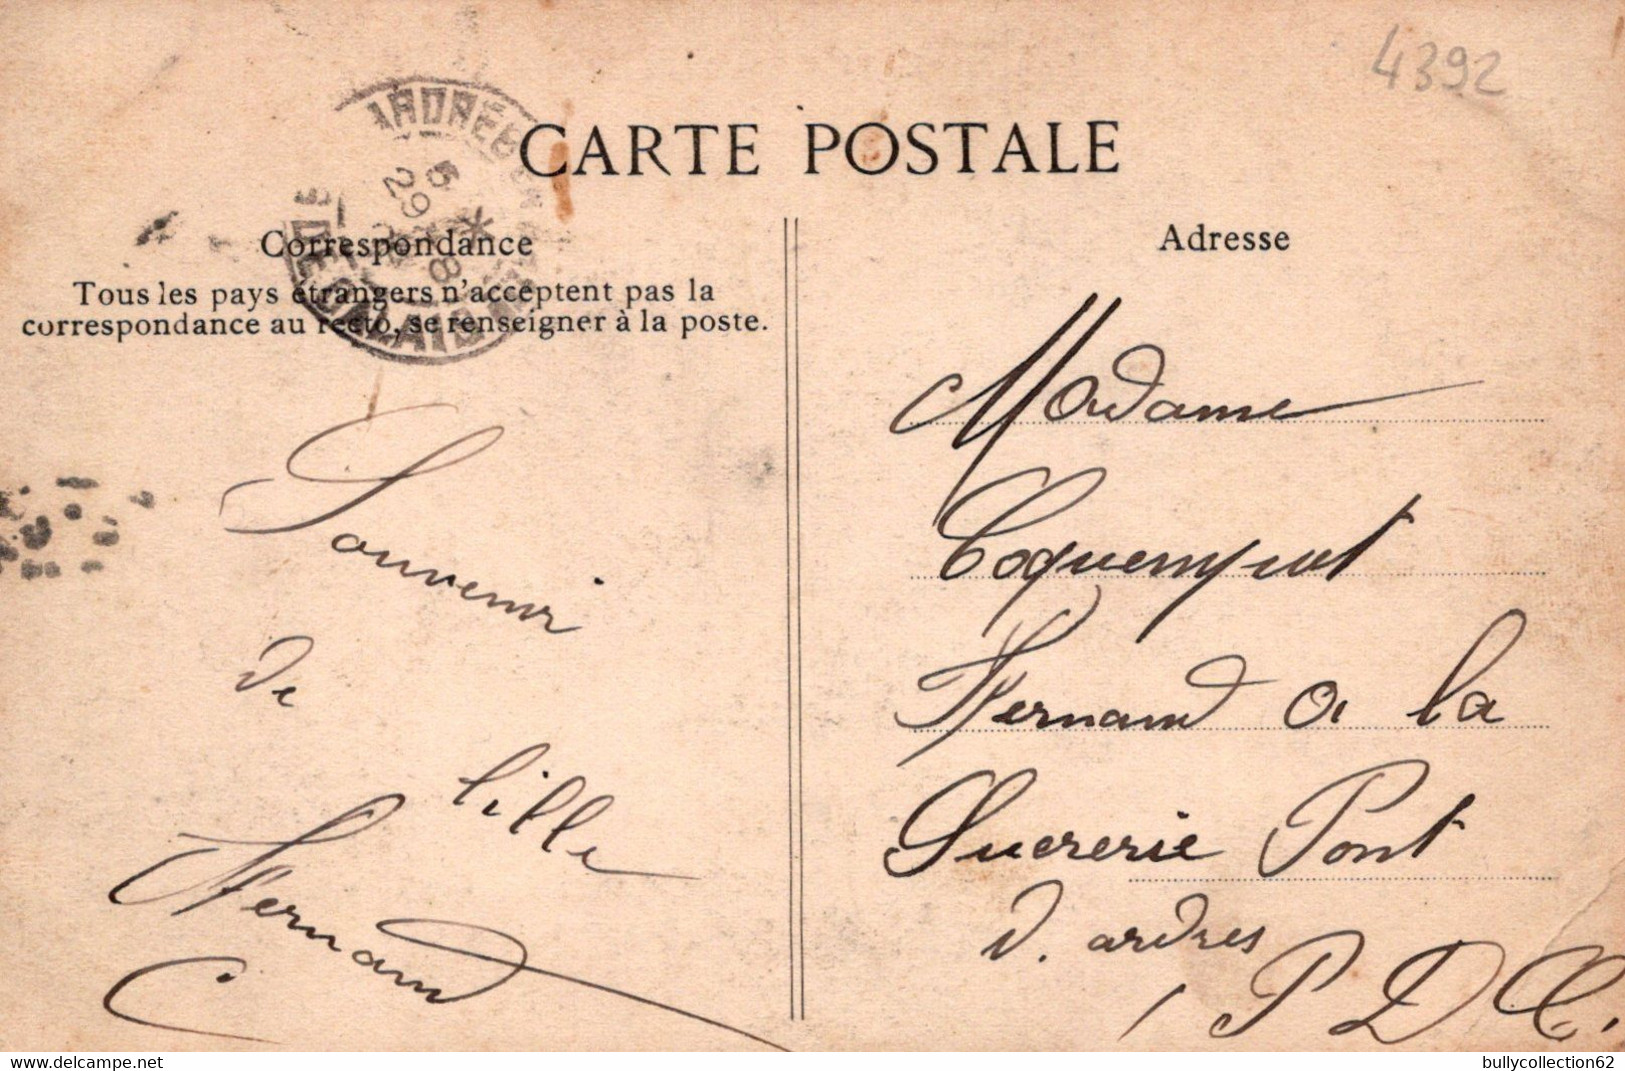 4392
CARTE POSTALE
Correspondance
Tous les pays étrangers n'acceptent pas la
correspondance au recto, se renseigner à la poste.
Souvenir
de
lille
Fernand
C
Adresse
Madame
Coquempot
Fernand a la
Sucrerie Pont
d. ardres
P D C.
delcampe.net
bullycollection62